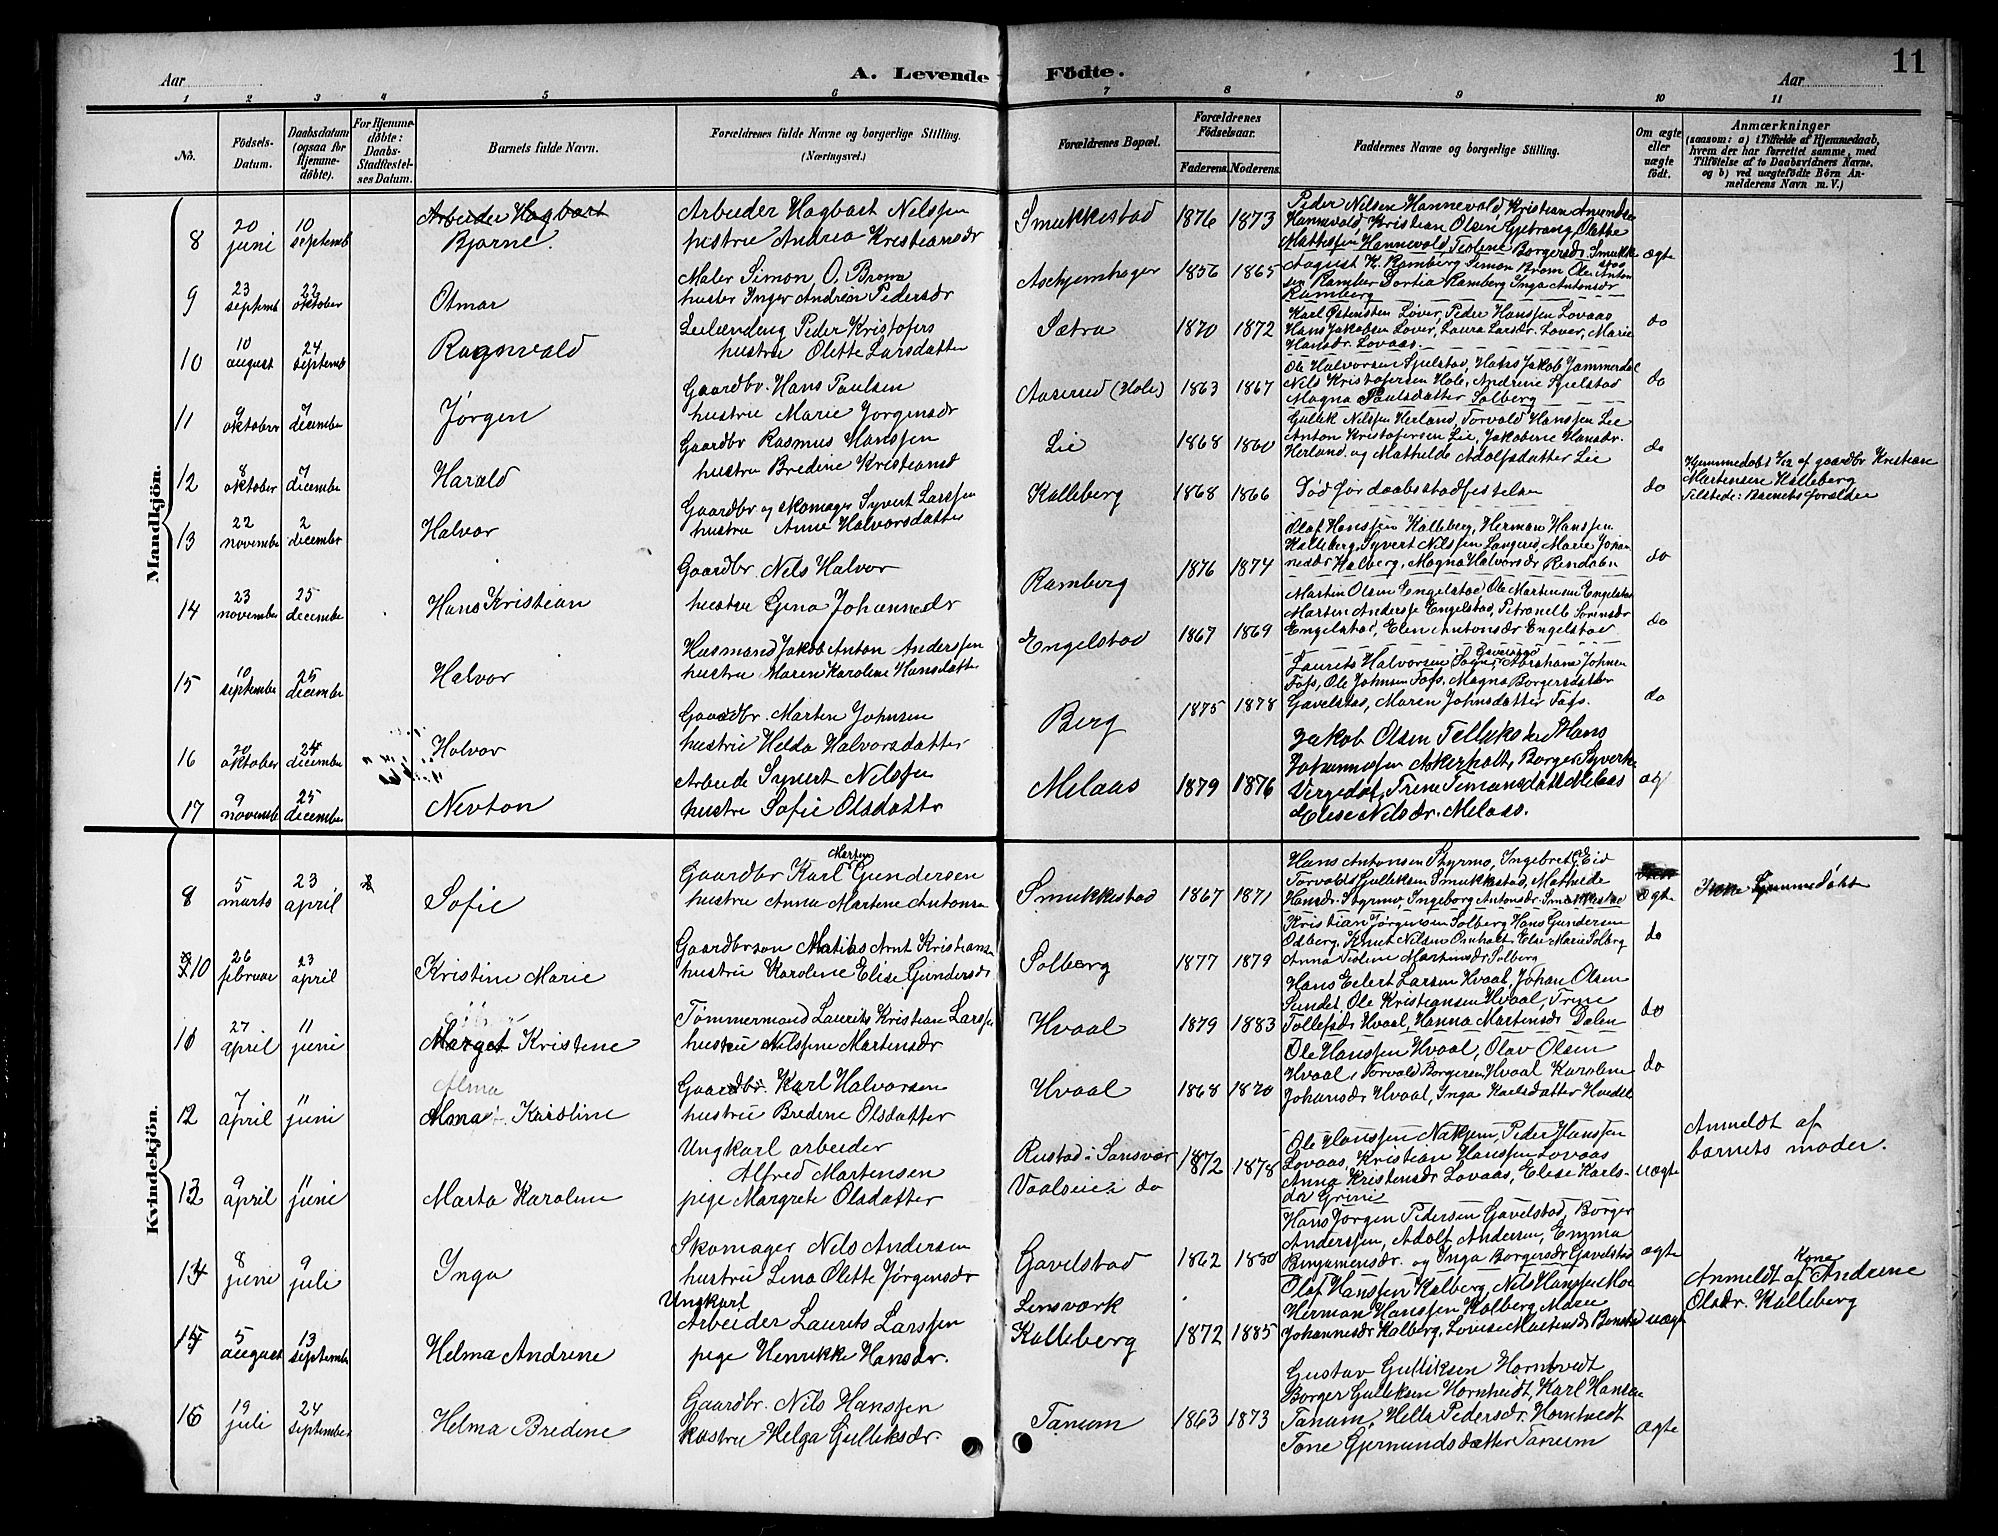 11
Aar
A. Levende
Födte.
Aar
1 2 3 4 5 6 7 8 9 10 11
No.
Födsels-
Datum.
Daabsdatum
(ogsaa for
Hjemme-
døbte).
For Hjemme-
døbte:
Daabs-
Stadfæstel-
ses Datum.
Barnets fulde Navn.
Forældrenes fulde Navne og borgerlige Stilling.
(Næringsvei.)
Forældrenes Bopæl.
Forældrenes
Födselsaar.
Faderens. Moderens.
Faddernes Navne og borgerlige Stilling.
Om ægte
eller
uægte
født.
Anmærkninger
(saasom: a) i Tilfælde af Hjemmedaab,
hvem der har forrettet samme, med
Tilføielse af to Daabsvidners Navne,
og b) ved uægtefødte Børn An-
melderens Navn m. V.)
Mandkjön.
8
20
juni
10
septemb
Arbeider Hagbart
Bjarne.
Arbeider Hagbart Nilssen
hustru Andrea Kristiansdr
Smukkestad
1876 1873
Peder Nilsen Hannevold, Kristian Amundsen
Hannevold, Kristian Olsen Gjetrang, Olette
Mathisen Hannevold, Teoline Borgersdr Smukke
stad
ægte
9
23
septemb
22
oktober
Otmar
Maler Simon O. Brom
hustru Inger Andrea Pedersdr
Aschjemhager
1856 1865
August H. Ramberg Simon Brom Ole Anton
sen Ramber Dortia Ramberg Inga Antonsdr
Ramberg
do
10
10
august
24
septemb
Ragnvald
Leilænding Peder Kristofers
hustru Olette Larsdatter
Sætra
1870 1872
Karl Østensten Løver, Peder Hanssen Lovaas
Hans Jakobsen Løver, Laura Larsdr. Løver, Marie
Hansdr. Lovaas.
do
11
9
oktober
7
decembe
Jørgen
Gaardbr. Hans Paulsen
hustru Marie Jørgensdr
Aaserud (Hole)
1863 1867
Ole Halvorsen Sjulstad, Hans Jakob Jammerdal
Nils Kristofersen Hole, Andrine Sjulstad
Magna Paulsdatter Solberg
do
12
8
oktober
7
decembe
Harald
Gaardbr Rasmus Hanssen
hustru Bredine Kristiansd
Lie
1868 1860
Gullik Nilssen Herland, Torvald Hanssen Lie
Anton Kristofersen Lie, Jakobine Hansdr.
Herland og Mathilde Adolfsdatter Lie
do
13
22
novembe
2
december
Halvor
Gaardbr og skomager Syvert Larssen
hustru Anne Halvorsdatter
Kalleberg
1868 1866
Død før daabsstadfestelsen
do
Hjemmedøbt 2/12 af gaardbr Kristian
Martensen Kalleberg
Tilstede: Barnets forældre
14
23
november
25
decembe
Hans Kristian
Gaardbr Nils Halvor
hustru Gina Johannedr
Ramberg
1876 1874
Olaf Hanssen Kalleberg, Herman Hanssen
Kalleberg, Syvert Nilssen Langerud, Marie Johan
nesdr Kalberg, Magna Halvorsdr Rendalen
do
15
10
septembe
25
decembe
Halvor
Husmand Jakob Anton Anderssen
hustru Maren Karoline Hansdatter
Engelstad
1867 1869
Martin Olsen Engelstad Ole Martensen Engelstad
Marten Andersse Engelstad, Petronelle Sørensdr
Engelstad, Elen Antonsdr Engelstad
do
16
20
oktober
24
decembe
Halvor
Gaardbr. Marten Johnsen
hustru Helda Halvorsdatter
Berg
1875 1878
Gavelstad
Laurits Halvorsen Sogn, Abraham Johnsen
Fafs, Ole Johnsen Fafs. Magna Borgersdatter
Gavelstad, Maren Johnsdatter Fafs.
do
17
9
novembe
25
december
Nevton
Arbeide Syvert Nilssen
hustru Sofie Olsdatter
Melaas
1879 1876
Jakob Olsen Hans
Johannessen Askerholt, Borger Syverts
Vergedal, Trine Melaas
Elise Nilsdr. Melaas.
Kvindekjön.
8
5
marts
23
april
Sofie
Marten
Gaardbr Karl Gundersen
hustru Anna Martine Antonsen
Smukkestad
1867 1871
Hans Antonsen Styrmo, Ingebret Eid
Torvald Gulliksen Smukkestad, Mathilde
Hansdr. Styrmo, Ingeborg Antonsdr. Smukkestad
ægte
Ikke hjemmedøbt
10
26
februar
23
april
Kristine Marie
Gaardbrsøn Matias Arnt Kristians
hustru Karoline Elise Gundersdr
Solberg
1877 1879
Kristian Jørgensen Solberg Hans Gundersen
Odberg, Knut Nilsen Omholt, Else Marie Solberg
Anna Teoline Martinsdr Solberg
do
11
27
april
11
juni
Marget Kristene
Tømmermand Laurits Kristian Larssen
hustru Nilssine Martensdr
Hvaal
1879 1883
Hans Eilert Larsen Hvaal, Johan Olsen
Sundet, Ole Kristiansen Hvaal, Trine
Tollefsdr Hvaal, Hanna Martensdr Dalen
do
12
7
april
11
juni
Alma
Alma Karoline
Gaardbr. Karl Halvorsen
hustru Bredine Olsdatter
Hvaal
1868 1870
Ole Hanssen Hvaal, Olav Olsen
Hvaal, Torvald Borgersen Hvaal Karoline
Johansdr Hvaal, Inga Karlsdatter Hvedel
do
13
9
april
11
juni
Marta Karoline
Ungkarl arbeider
Alfred Martensen
pige Margrete Olsdatter
Rustad i Sansvær
Vaalseie i do
1872 1878
Ole Hanssen Nakjem, Peder Hanssen
Lovaas, Kristian Hanssen Lovaas
Anna Kristensdr Lovaas, Elise Karls-
dr Grini
uægte
Anmeldt af
barnets moder.
14
8
juni
9
juli
Inga
Skomager Nils Andersen
hustru Lina Olette Jørgensdr
Gavelstad
1862 1880
Hans Jørgen Pedersen Gavelstad, Borger
Anderssen, Adolf Andersen, Emma
Binjamensdr. og Inga Borgersdr Gavelstad
ægte
15
5
august
13
septembe
Helma Andrine
Ungkarl
Arbeider Laurits Larssen
pige Henrikke Hansdr.
Linsværk
Kalleberg
1872 1885
Olaf Hanssen Kalberg, Nils Hanssen Moe
Herman Hanssen Kalberg Marie
Johannesdr Kalberg, Lovise Martensdr Bonsta
uægt
Kone
Anmeldt af Andrine
Olsdr. Kalleberg
16
19
juli
24
september
Helma Bredine
Gaardbr. Nils Hanssen
hustru Helga Gulliksdr.
Tanum
1863 1873
Gustav Gulliksen Horntvedt
Borger Gulliksen Horntvedt, Karl Hansen
Tanum, Hella Pedersdr. Horntvedt
Tone Gjermundsdatter Tanum
ægte